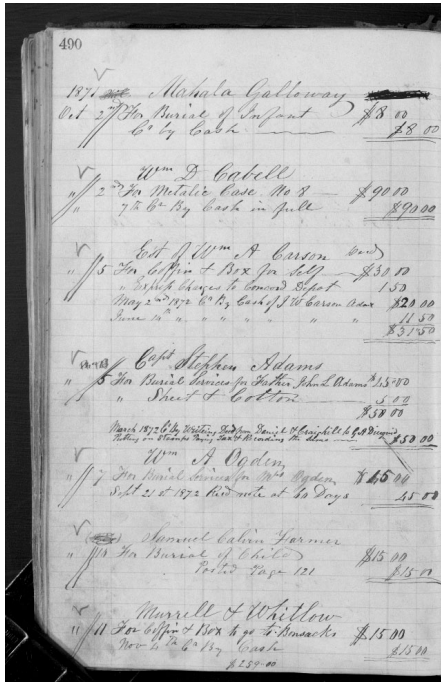 490
1871 Mahala Galloway
Oct 2nd For Burial of Infant $8 00
Cr by Cash $8 00
Wm D. Cabell
" 2nd For Metalic Case No 8 $90 00
" 7th Cr By Cash in full $90 00
Est of Wm A Carson
" 5 For Coffin & Box for Self $30 00
" Express Charges to Concord Depot 1 50
May 2nd 1872 Cr By Cash of J W Carson Admr $20 00
June 14th " " " " " " 11 50
$31 50
Capt Stephen Adams
" 5 For Burial Services for Father John L Adams $45 00
" Sheet & Cotton 5 00
$50 00
March 1872 Cr By Writing Deed from Daniel & Craighill to
Putting on Stamps Paying Tax & Recording the Same $50 00
Wm A Ogden
" 7 For Burial Services for Mrs Ogden $45 00
Sept 21st 1872 Recd note at 60 Days 45 00
Samuel Calvin Farmer
" 10 For Burial of Child $15 00
Posted Page 121 $15 00
Murrell & Whitlow
" 11 For Coffin & Box to go to Bonsacks $15 00
Nov 4th Cr By Cash $15 00
$259 00